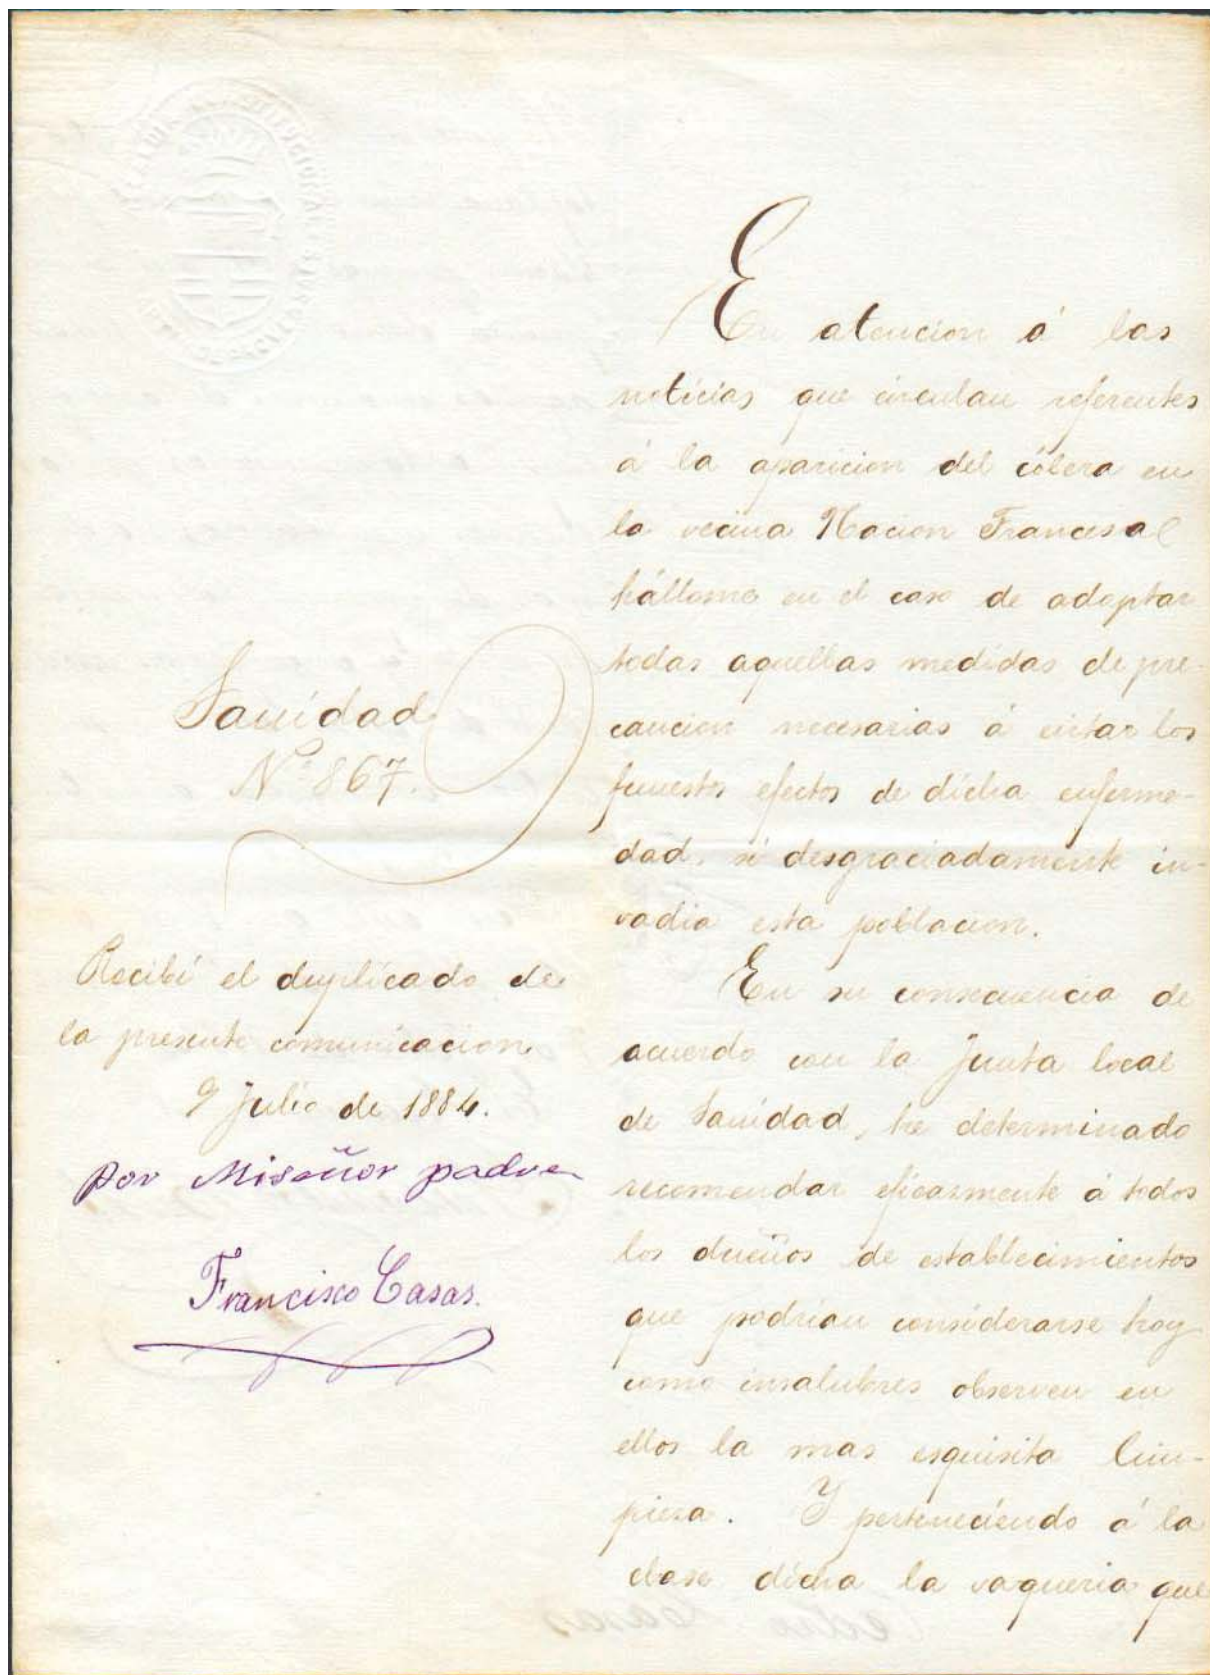 Sanidad
Nº 867.
Recibí el duplicado de
la presente comunicacion
9 Julio de 1884.
por Miseñor padre
Francisco Casas.
En atencion á las
noticias que circulan referentes
á la aparicion del cólera en
la vecina Nacion Francesa
hállome en el caso de adoptar
todas aquellas medidas de pre-
caucion necesarias á evitar los
funestos efectos de dicha enferme-
dad, si desgraciadamente in-
vadia esta poblacion.
En su consecuencia de
acuerdo con la Junta local
de Sanidad, he determinado
recomendar eficazmente á todos
los dueños de establecimientos
que podrian considerarse hoy
como insalubres observen en
ellos la mas esquisita lim-
pieza. Y perteneciendo á la
clase dicha la vaqueria que